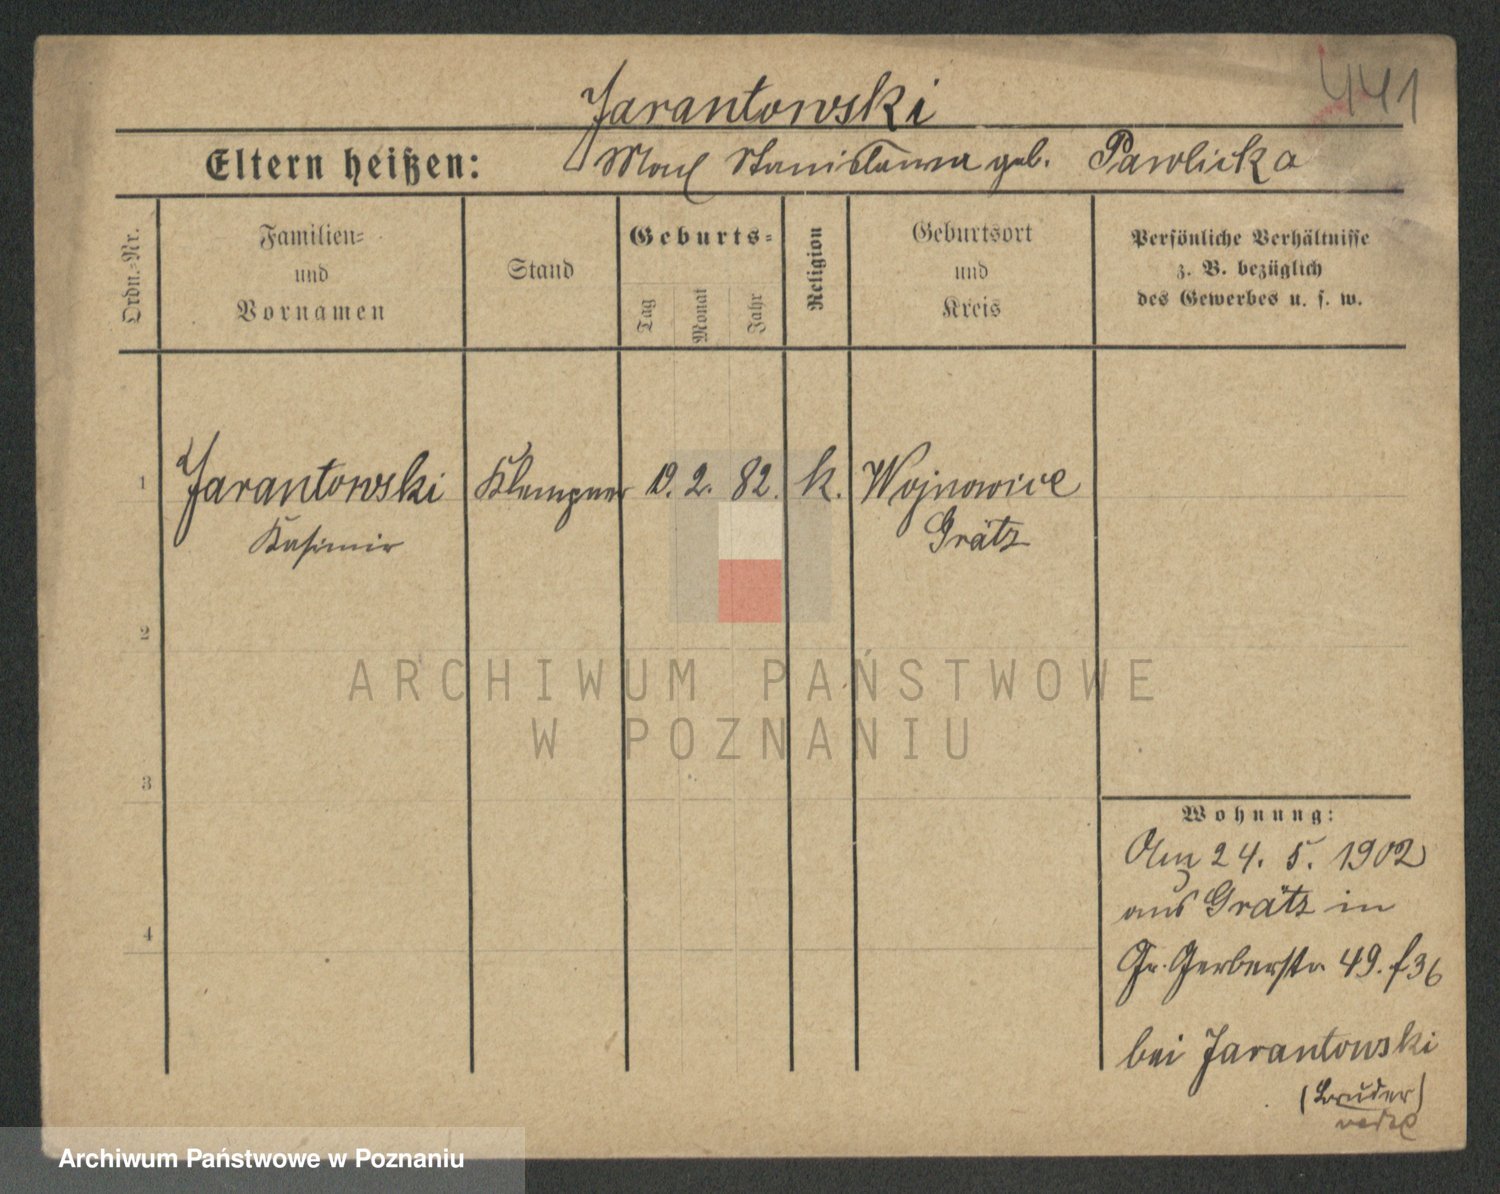 441
Jarantowski
Eltern heißen: Stanislawa geb. Pawlicka
Ordn.-Nr.
Familien-
und
Vornamen
Stand
Geburts-
Tag
Monat
Jahr
Religion
Geburtsort
und
Kreis
Persönliche Verhältnisse
z. B. bezüglich
des Gewerbes u. s. w.
1 Jarantowski Klempner 19. 2. 82. k. Wojnowice
Kasimir Grätz
2
ARCHIWUM PAŃSTWOWE
W POZNANIU
3
Wohnung:
Am 24. 5. 1902
aus Grätz in
4
Gr. Gerberstr. 49. f36
bei Jarantowski
(Bruder)
Archiwum Państwowe w Poznaniu